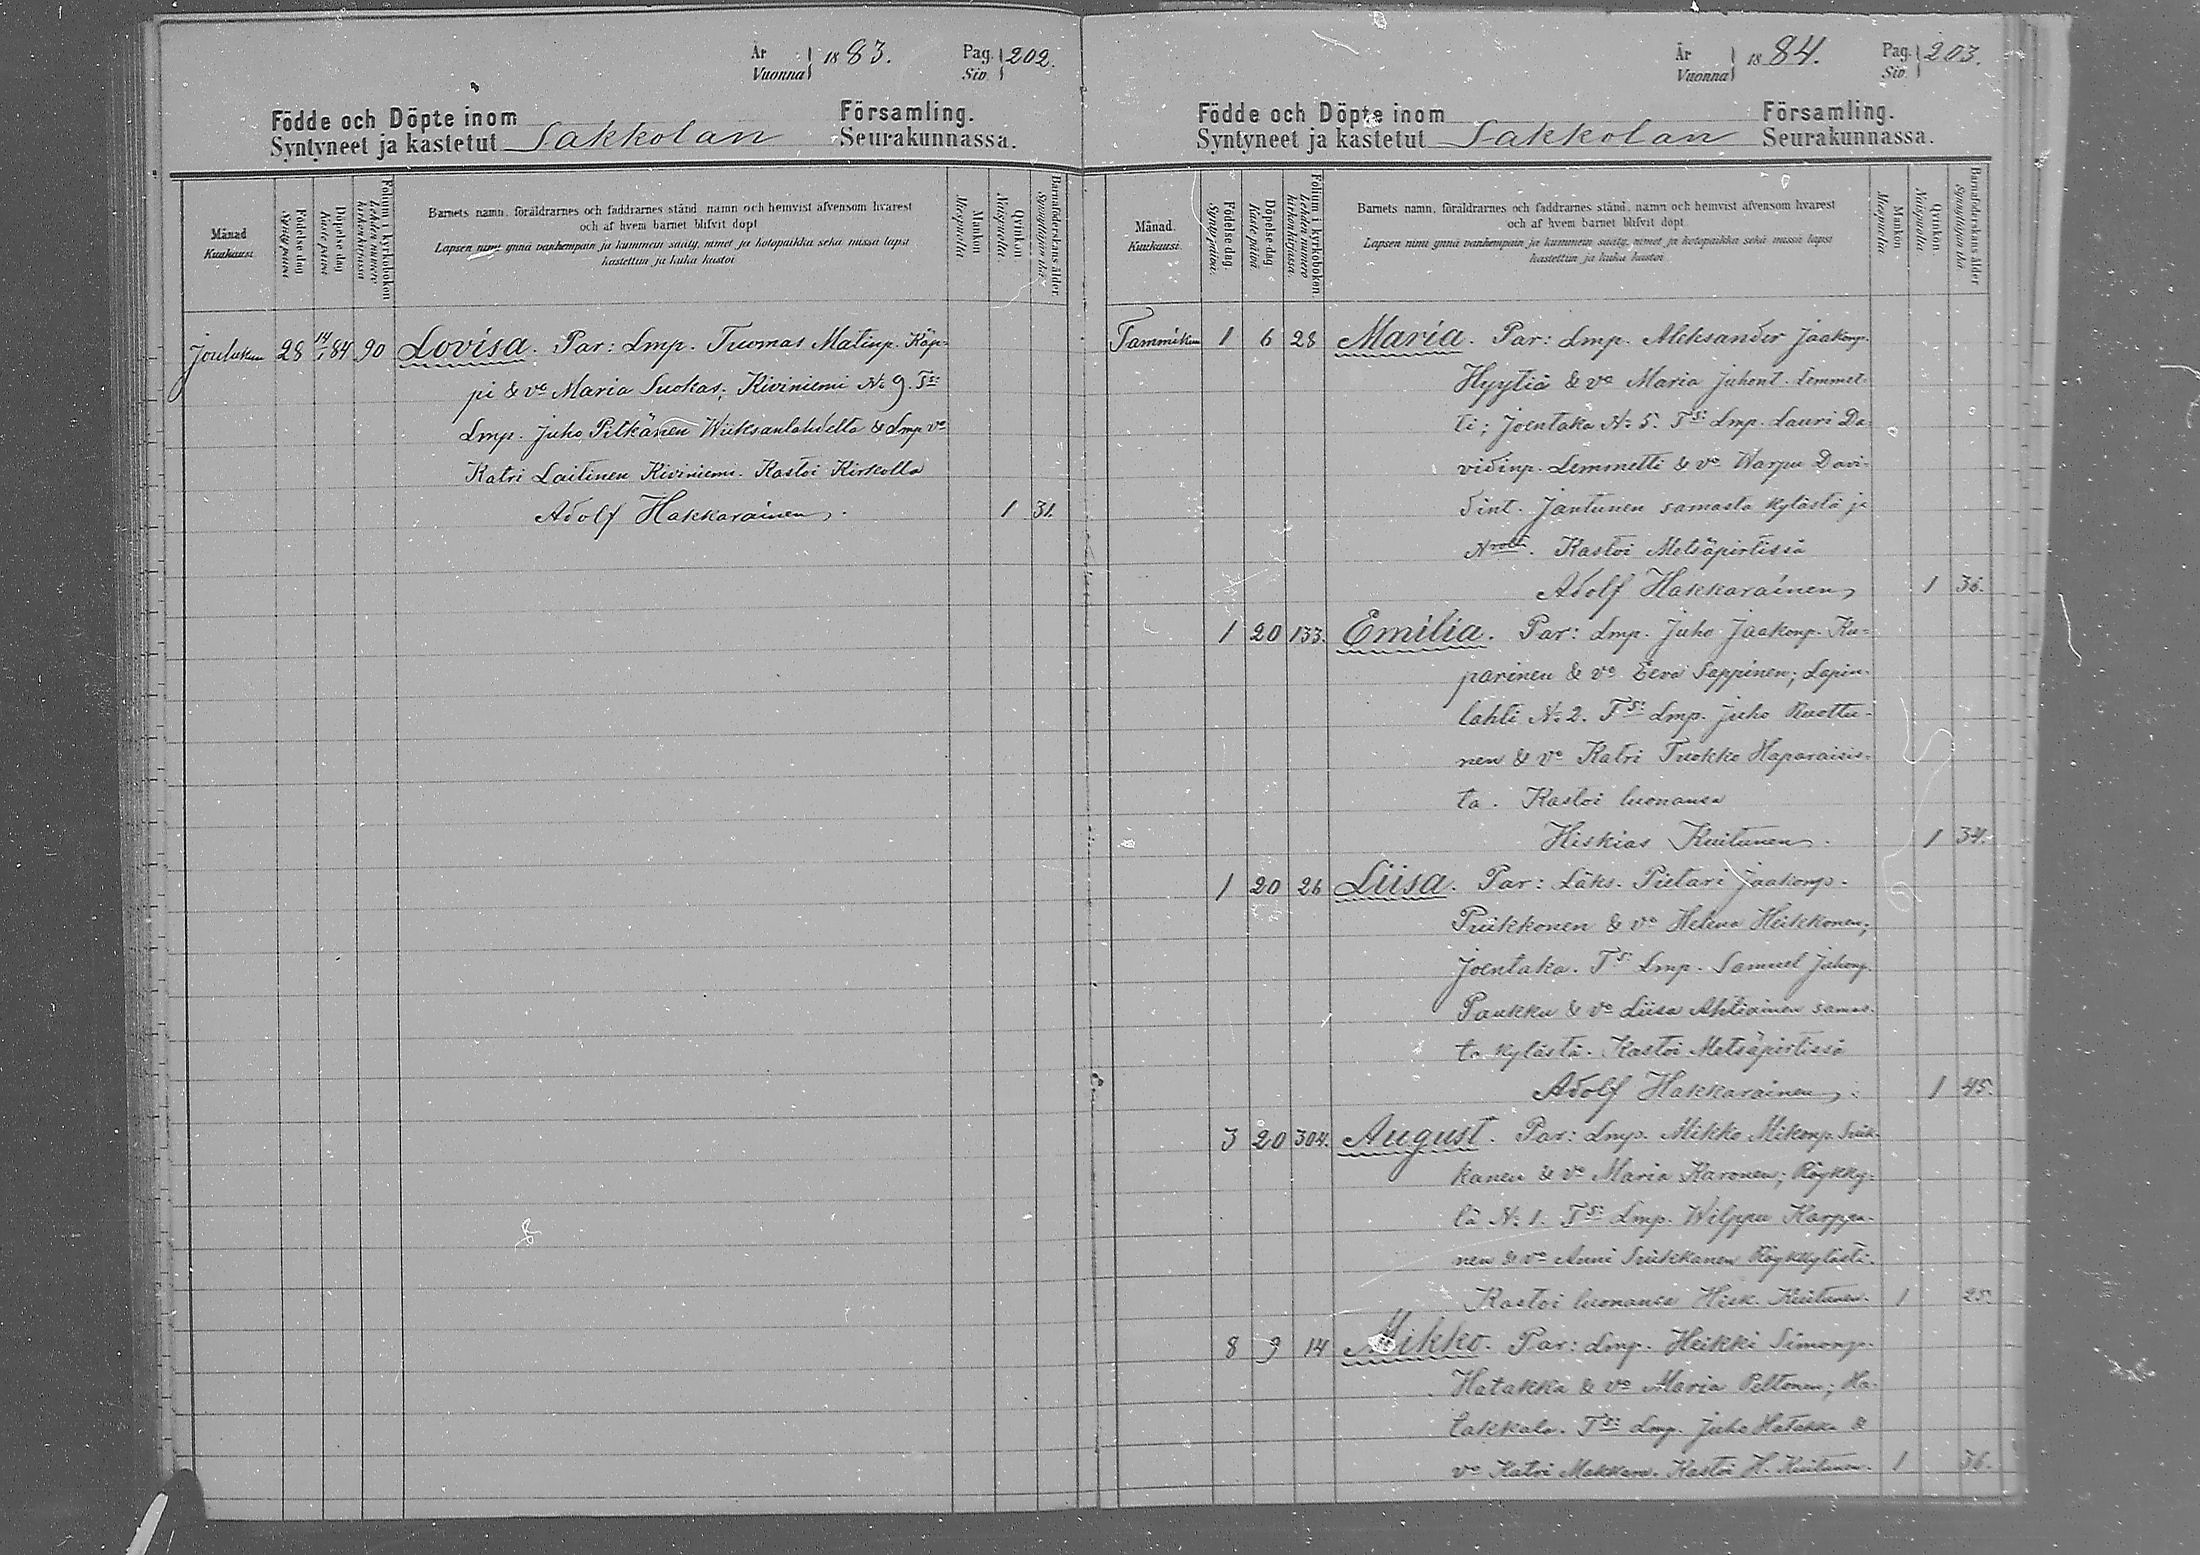 År Vuonna 1883. Pag. Siv. 202.
Födde och Döpte inom Församling.
Syntyneet ja kastetut Sakkolan Seurakunnassa.
Månad. Kuukausi
Födelse-dag Syntypäivä
Döpelse-dag Kastepäivä
Folium i kyrkoboken Lehden numero kirkonkirjassa
Barnets namn, föräldrarnes och faddrarnes stånd, namn och hemvist äfvensom hvarest
och af hvem barnet blifvit döpt
Lapsen nimi ynnä vanhempain ja kummein sääty, nimet ja kotopaikka sekä missä lapsi
kastettiin ja kuka kastoi
Mankön Miespuolia
Qvinkön Naispuolia
Barnaföderskans ålder Synnyttäjän ikä
Joulukuu 28 14/1 84 90 Lovisa. Par: Lmp. Tuomas Matinp. Käp-
pi & vo Maria Suokas; Kiviniemi No 9. Ts:
Lmp. Juho Pitkänen Wiiksanlahdelta & Lmp vo
Katri Laitinen Kiviniemi. Kastoi Kirkolla
Adolf Hakkarainen. 1 31.
År Vuonna 1884. Pag. Siv. 203.
Födde och Döpte inom Församling.
Syntyneet ja kastetut Sakkolan Seurakunnassa.
Månad. Kuukausi.
Födelse-dag. Syntypäivä.
Döpelse-dag. Kastepäivä
Folium i kyrkoboken. Lehden numero kirkonkirjassa
Barnets namn, föräldrarnes och faddrarnes stånd, namn och hemvist äfvensom hvarest
och af hvem barnet blifvit döpt.
Lapsen nimi ynnä vanhempain ja kummein sääty, nimet ja kotopaikka sekä missä lapsi
kastettiin ja kuka kastoi
Mankön Miespuolia
Qvinkön. Naispuolia.
Barnaföderskans ålder Synnyttäjän ikä
Tammikuu 1 6 28 Maria. Par: Lmp. Aleksander Jaakonp.
Hyytiä & vo Maria Juhont. Lemmet-
ti; Joentaka No 5. Ts: Lmp. Lauri Da
vidinp. Lemmetti & vo Warpu Davi-
dint. Jantunen samasta kylästä ja
Kastoi Metsäpirtissä
Adolf Hakkarainen, 1 36.
1 20 133. Emilia. Par: Lmp. Juho Jaakonp. Ku-
parinen & vo Eeva Seppinen; Lapin-
lahti No 2. Ts: Lmp. Juho Ruottu-
nen & vo Katri Tuokko Haparaisis-
ta. Kastoi luonansa
Hiskias Kuitunen. 1 34.
1 20 26 Liisa. Par: Läks. Pietari Jaakonp.
Priikkonen & vo Helena Heikkonen;
Joentaka. Ts: Lmp. Samuel Juhonp.
Paukku & vo Liisa Ahtiainen samas-
ta kylästä. Kastoi Metsäpirtissä
Adolf Hakkarainen. 1 45.
3 20 304. August. Par: Lmp. Mikko Mikonp. Siik-
kanen & vo Maria Karonen; Röykky-
lä No 1. Ts: Lmp. Wilppu Karppa-
nen & vo Anni Siikkanen Röykkylästä.
Kastoi luonansa Hisk. Kuitunen. 1 25.
8 9 14 Mikko. Par: Lmp. Heikki Simonp.
Hatakka & vo Maria Peltonen; Ha-
takkala. Ts: Lmp. Juho Hatakka &
vo Katri Makkanen. Kastoi H. Kuitunen. 1 36.